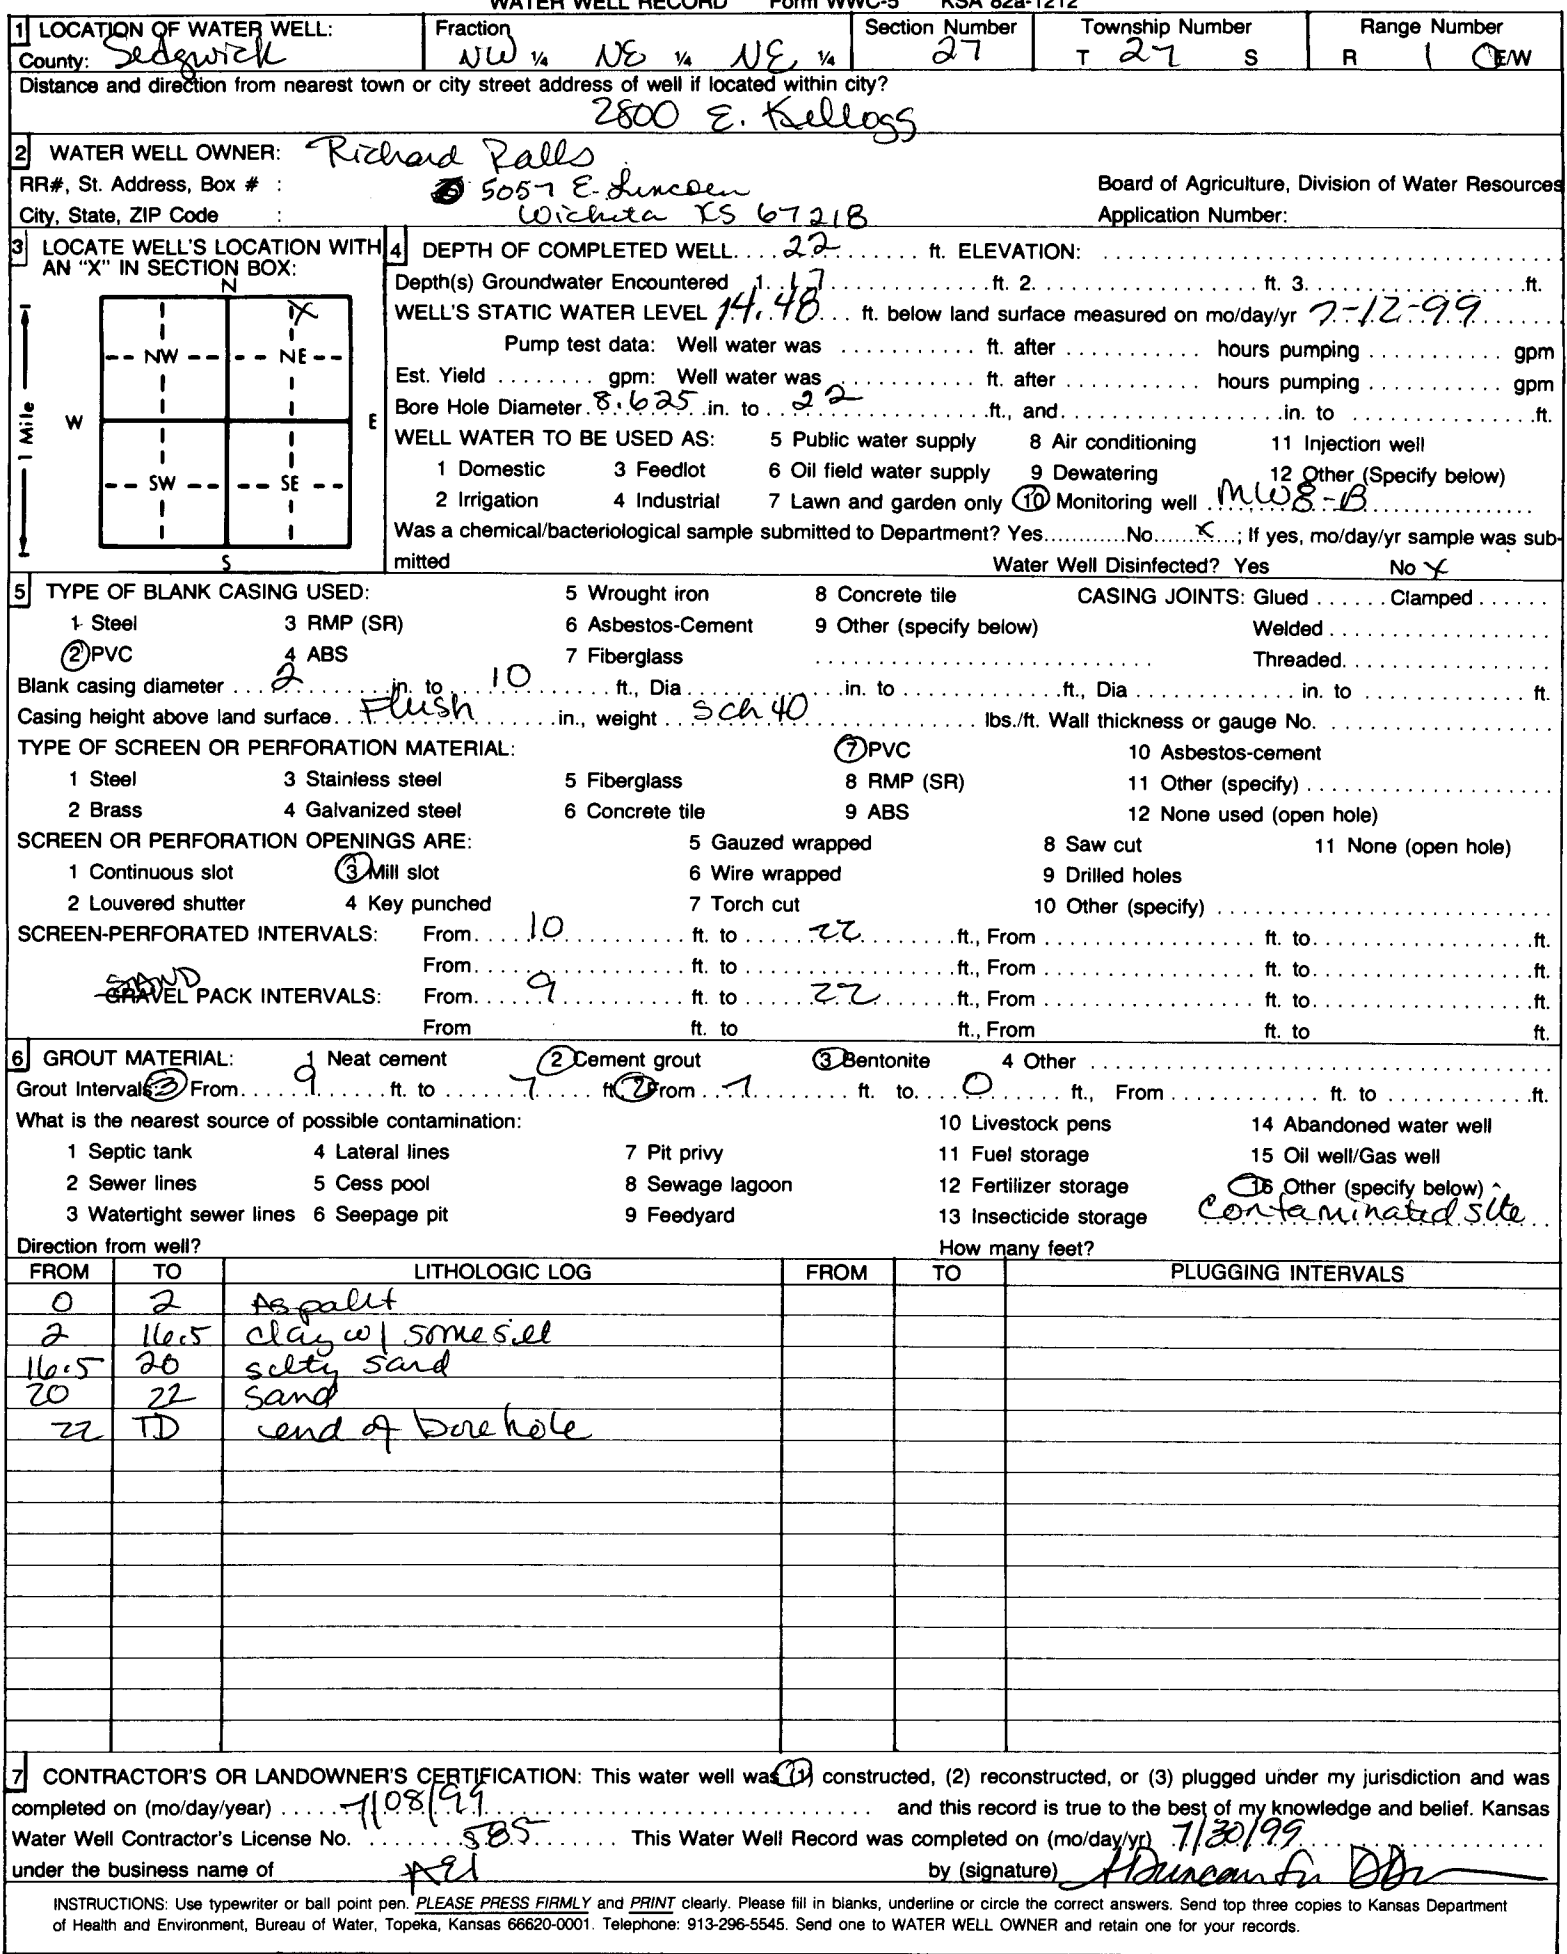 WATER WELL RECORD Form WWC-5 KSA 82a-1212
1 LOCATION OF WATER WELL: Fraction Section Number Township Number Range Number
County: Sedgwick NW ¼ NE ¼ NE ¼ 27 T 27 S R 1 E/W
Distance and direction from nearest town or city street address of well if located within city?
2800 E. Kellogg
2 WATER WELL OWNER: Richard Ralls
RR#, St. Address, Box # : 5057 E. Lincoln Board of Agriculture, Division of Water Resources
City, State, ZIP Code : Wichita KS 67218 Application Number:
3 LOCATE WELL'S LOCATION WITH AN "X" IN SECTION BOX:
N
X
NW NE
W E
SW SE
S
1 Mile
4 DEPTH OF COMPLETED WELL.... 22 ft. ELEVATION:
Depth(s) Groundwater Encountered 1. 17 ft. 2. ft. 3. ft.
WELL'S STATIC WATER LEVEL 14.48 ft. below land surface measured on mo/day/yr 7-12-99
Pump test data: Well water was ft. after hours pumping gpm
Est. Yield gpm: Well water was ft. after hours pumping gpm
Bore Hole Diameter 8.625 in. to 22 ft., and in. to ft.
WELL WATER TO BE USED AS: 5 Public water supply 8 Air conditioning 11 Injection well
1 Domestic 3 Feedlot 6 Oil field water supply 9 Dewatering 12 Other (Specify below)
2 Irrigation 4 Industrial 7 Lawn and garden only 10 Monitoring well MW8-B
Was a chemical/bacteriological sample submitted to Department? Yes No X ; If yes, mo/day/yr sample was sub-
mitted Water Well Disinfected? Yes No X
5 TYPE OF BLANK CASING USED: 5 Wrought iron 8 Concrete tile CASING JOINTS: Glued Clamped
1 Steel 3 RMP (SR) 6 Asbestos-Cement 9 Other (specify below) Welded
2 PVC 4 ABS 7 Fiberglass Threaded
Blank casing diameter 2 in. to 10 ft., Dia in. to ft., Dia in. to ft.
Casing height above land surface Flush in., weight Sch 40 lbs./ft. Wall thickness or gauge No.
TYPE OF SCREEN OR PERFORATION MATERIAL: 7 PVC 10 Asbestos-cement
1 Steel 3 Stainless steel 5 Fiberglass 8 RMP (SR) 11 Other (specify)
2 Brass 4 Galvanized steel 6 Concrete tile 9 ABS 12 None used (open hole)
SCREEN OR PERFORATION OPENINGS ARE: 5 Gauzed wrapped 8 Saw cut 11 None (open hole)
1 Continuous slot 3 Mill slot 6 Wire wrapped 9 Drilled holes
2 Louvered shutter 4 Key punched 7 Torch cut 10 Other (specify)
SCREEN-PERFORATED INTERVALS: From 10 ft. to 22 ft., From ft. to ft.
From ft. to ft., From ft. to ft.
SAND
GRAVEL PACK INTERVALS: From 9 ft. to 22 ft., From ft. to ft.
From ft. to ft., From ft. to ft.
6 GROUT MATERIAL: 1 Neat cement 2 Cement grout 3 Bentonite 4 Other
Grout Intervals 3 From 9 ft. to 7 ft. 2 From 7 ft. to 0 ft., From ft. to ft.
What is the nearest source of possible contamination: 10 Livestock pens 14 Abandoned water well
1 Septic tank 4 Lateral lines 7 Pit privy 11 Fuel storage 15 Oil well/Gas well
2 Sewer lines 5 Cess pool 8 Sewage lagoon 12 Fertilizer storage 16 Other (specify below)
3 Watertight sewer lines 6 Seepage pit 9 Feedyard 13 Insecticide storage contaminated site
Direction from well? How many feet?
FROM TO LITHOLOGIC LOG FROM TO PLUGGING INTERVALS
0 2 Aspalt
2 16.5 clay w/ some silt
16.5 20 silty sand
20 22 sand
22 TD end of borehole
7 CONTRACTOR'S OR LANDOWNER'S CERTIFICATION: This water well was (1) constructed, (2) reconstructed, or (3) plugged under my jurisdiction and was
completed on (mo/day/year) 7/08/99 and this record is true to the best of my knowledge and belief. Kansas
Water Well Contractor's License No. 585 This Water Well Record was completed on (mo/day/yr) 7/30/99
under the business name of AEI by (signature)
INSTRUCTIONS: Use typewriter or ball point pen. PLEASE PRESS FIRMLY and PRINT clearly. Please fill in blanks, underline or circle the correct answers. Send top three copies to Kansas Department
of Health and Environment, Bureau of Water, Topeka, Kansas 66620-0001. Telephone: 913-296-5545. Send one to WATER WELL OWNER and retain one for your records.